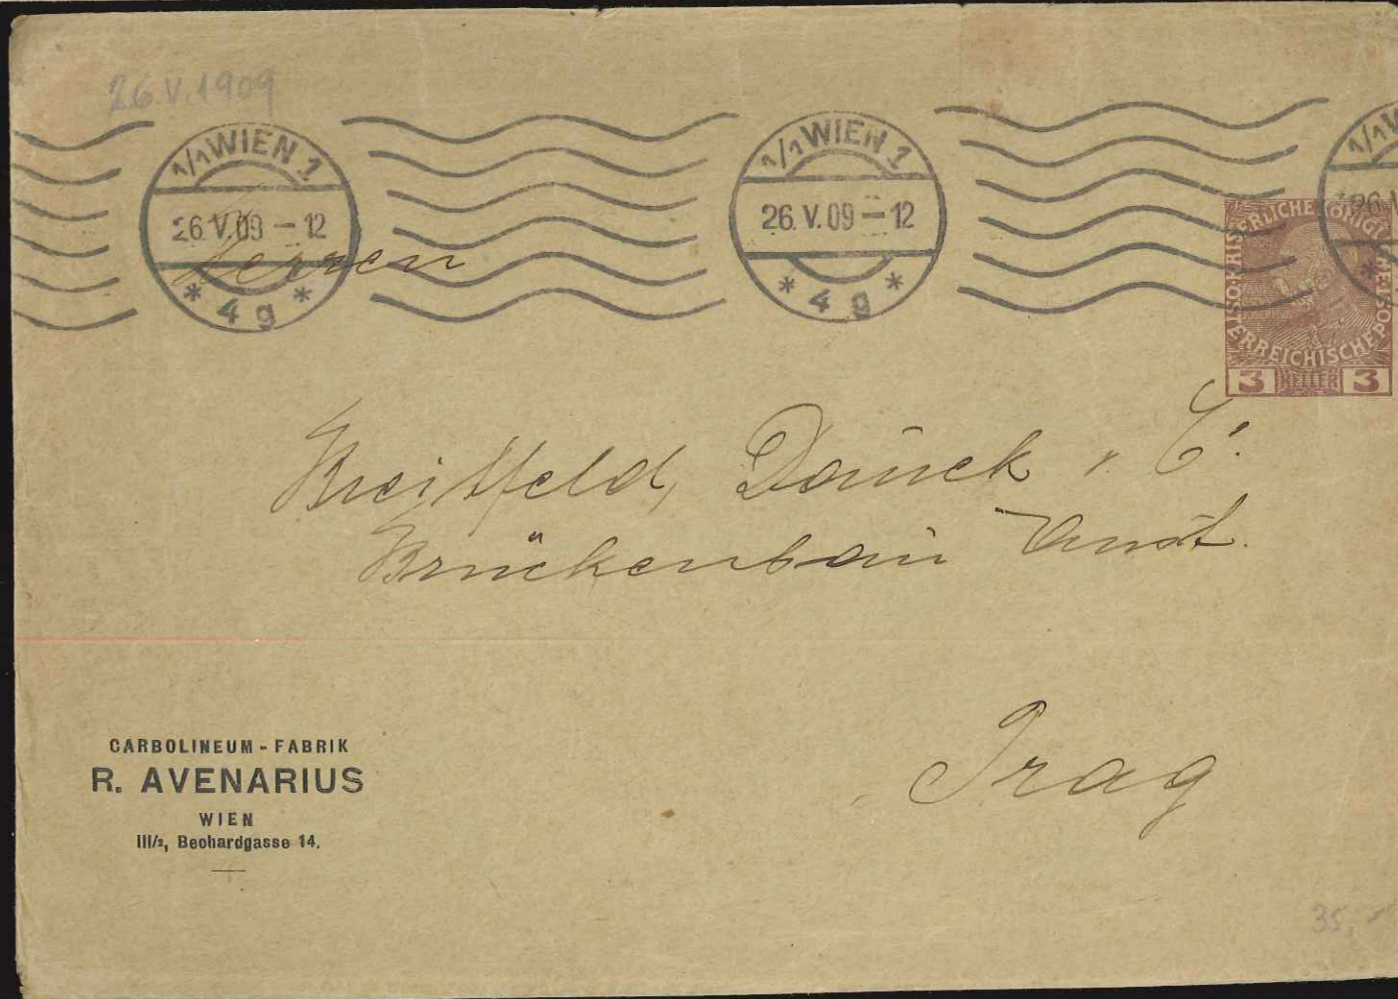 26.V.1909
1/1 WIEN 1
26.V.09-12
* 4g *
1/1 WIEN 1
26.V.09-12
* 4g *
1/1 W
26 V
*
KAISERLICHE KÖNIGLICHE ÖSTERREICHISCHE POST
3 HELLER 3
Herren
Breitfeld, Daněk & C.
Brückenbau Anst.
Prag
CARBOLINEUM-FABRIK
R. AVENARIUS
WIEN
III/2, Beohardgasse 14.
35,-